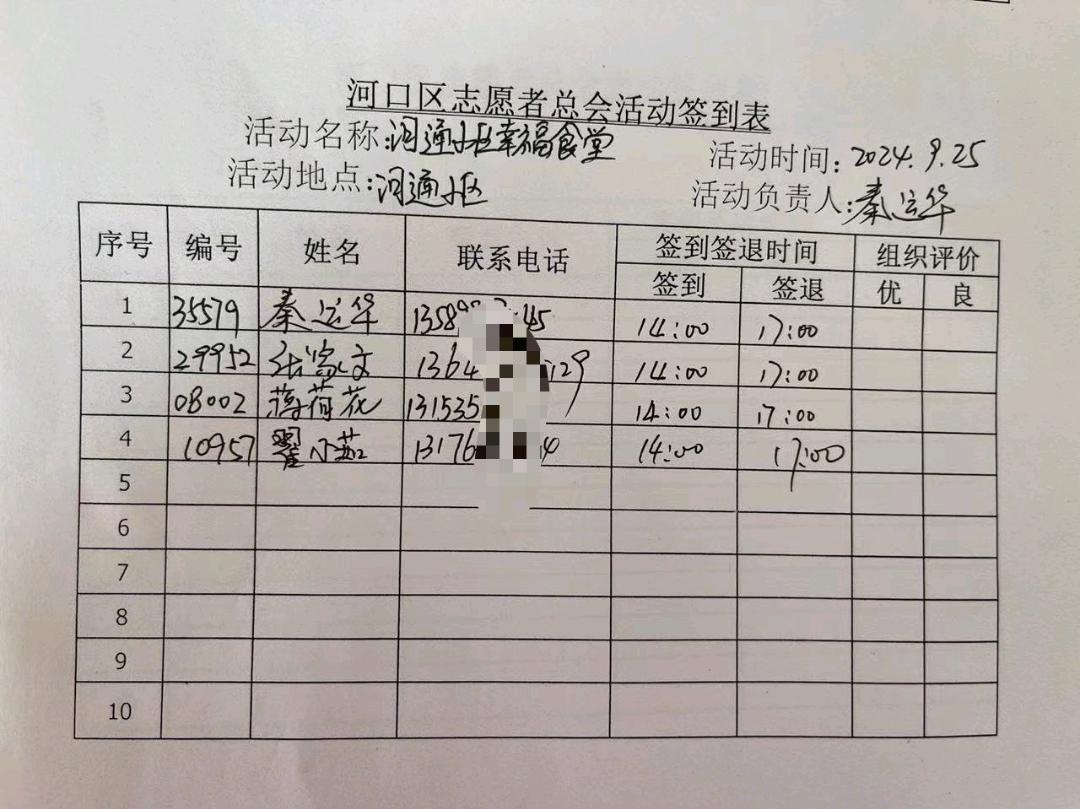 河口区志愿者总会活动签到表
活动名称:河通小区幸福食堂
活动时间:2024.9.25
活动地点:河通小区
活动负责人:秦运华
序号 编号 姓名 联系电话 签到签退时间 组织评价
签到 签退 优 良
1 35579 秦运华 1358 45 14:00 17:00
2 29952 张富文 1364 129 14:00 17:00
3 08002 薄荷花 131535 14:00 17:00
4 10957 翟小茹 13176 4 14:00 17:00
5
6
7
8
9
10